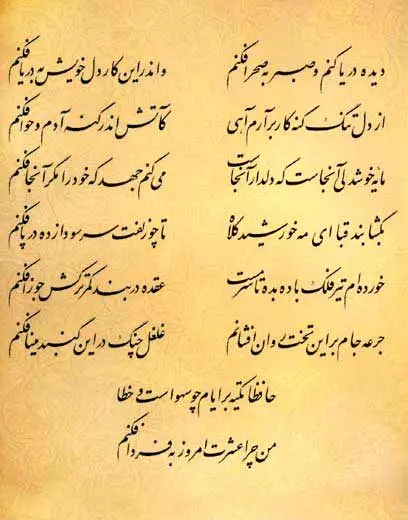 دیده دریا کنم و صبر به صحرا فکنم واندر این کار دل خویش به دریا فکنم
از دل تنگ گنه کار برآرم آهی کآتش اندر گنه آدم و حوا فکنم
مایه خوشدلی آنجاست که دلدار آنجاست می کنم جهد که خود را مگر آنجا فکنم
بگشا بند قبا ای مه خورشید کلاه تا چو زلفت سر سودا زده در پا فکنم
خورده ام تیر فلک باده بده تا سرمست عقده در بند کمر ترکش جوزا فکنم
جرعه جام بر این تخت روان افشانم غلغل چنگ در این گنبد مینا فکنم
حافظا تکیه بر ایام چو سهو است و خطا
من چرا عشرت امروز به فردا فکنم